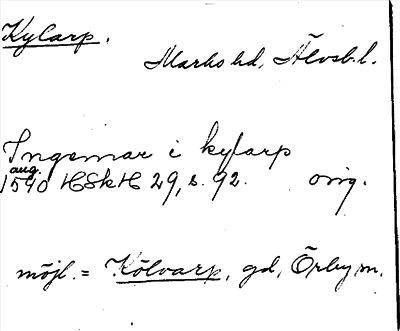 Kylarp.
Marks hd, Älvsb. l.
Ingemar i kylarp
aug.
1540 HSkH 29, s. 92. orig.
möjl. = Kölvarp, gd, Örby sn.